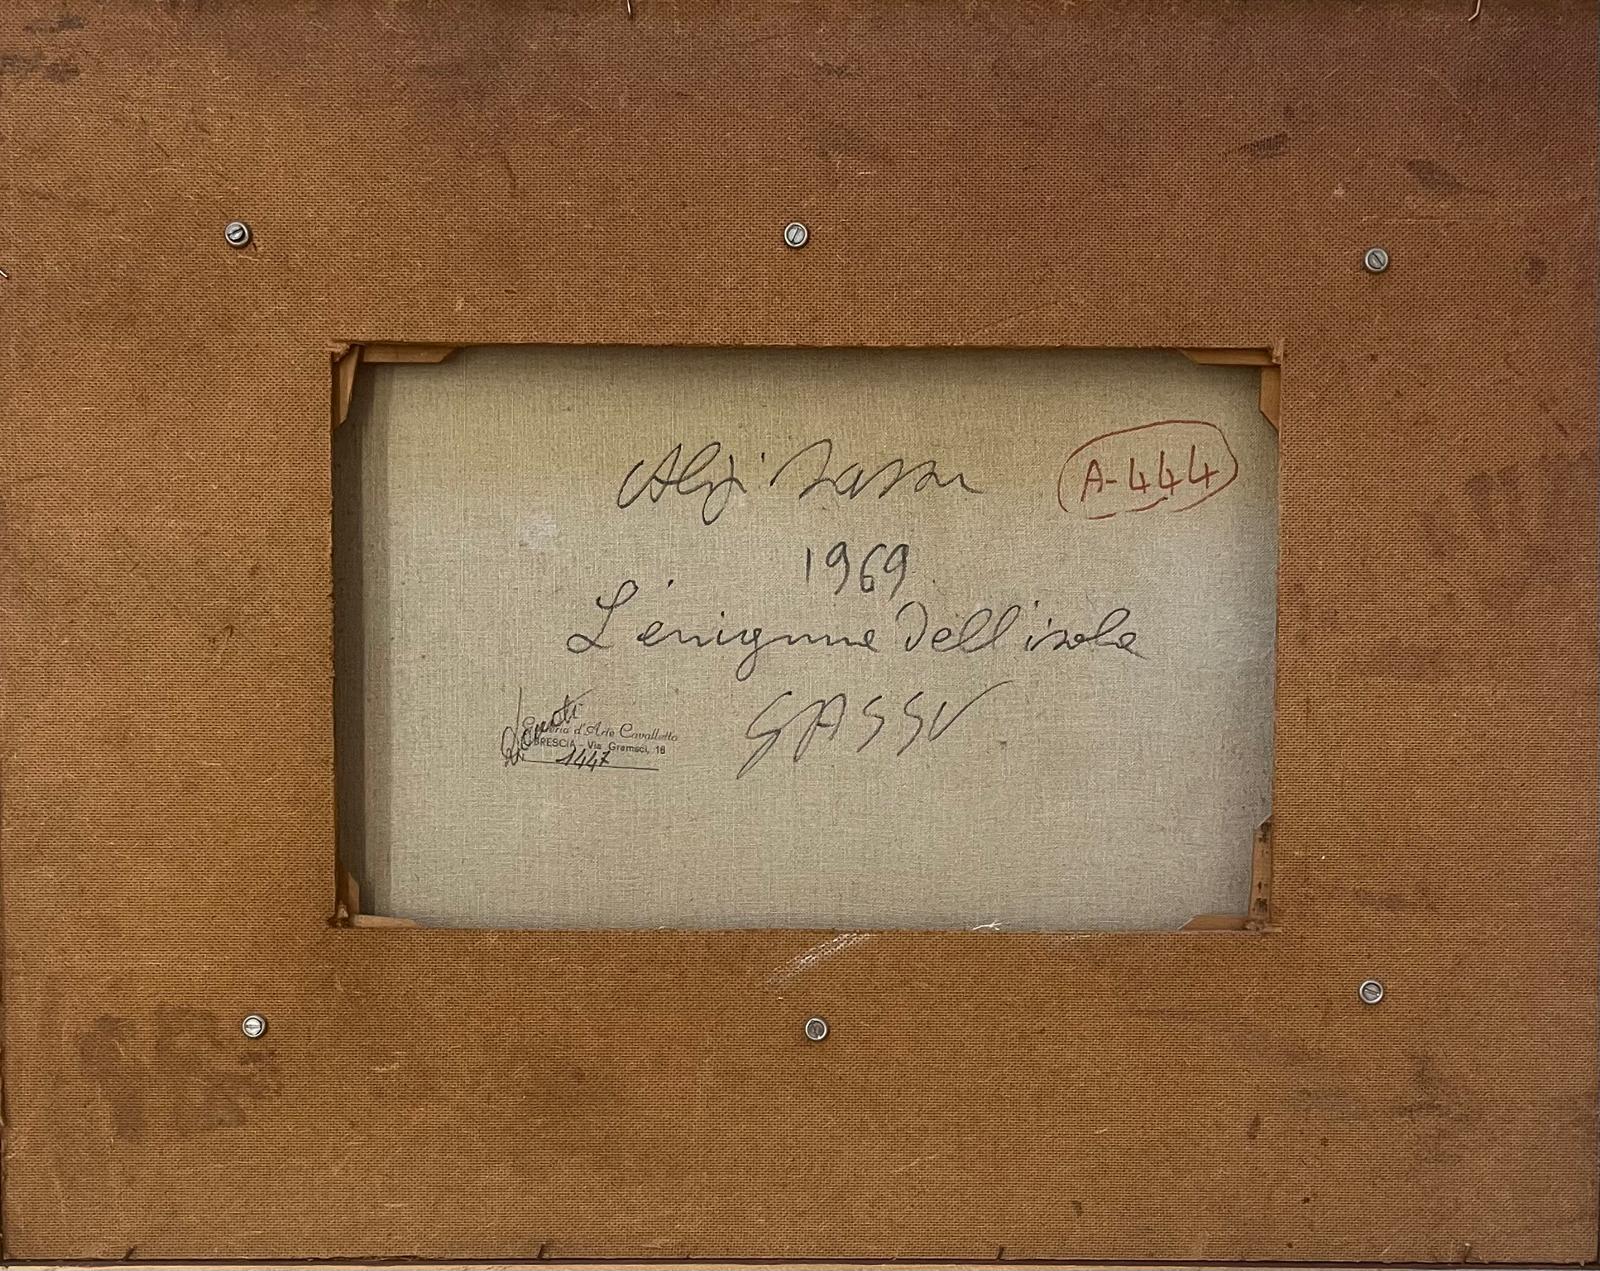 Aligi Sassu
A-444
1969
L'enigma dell'isola
SASSU
Galleria d'Arte Cavalletto
BRESCIA - Via Gramsci, 18
1447